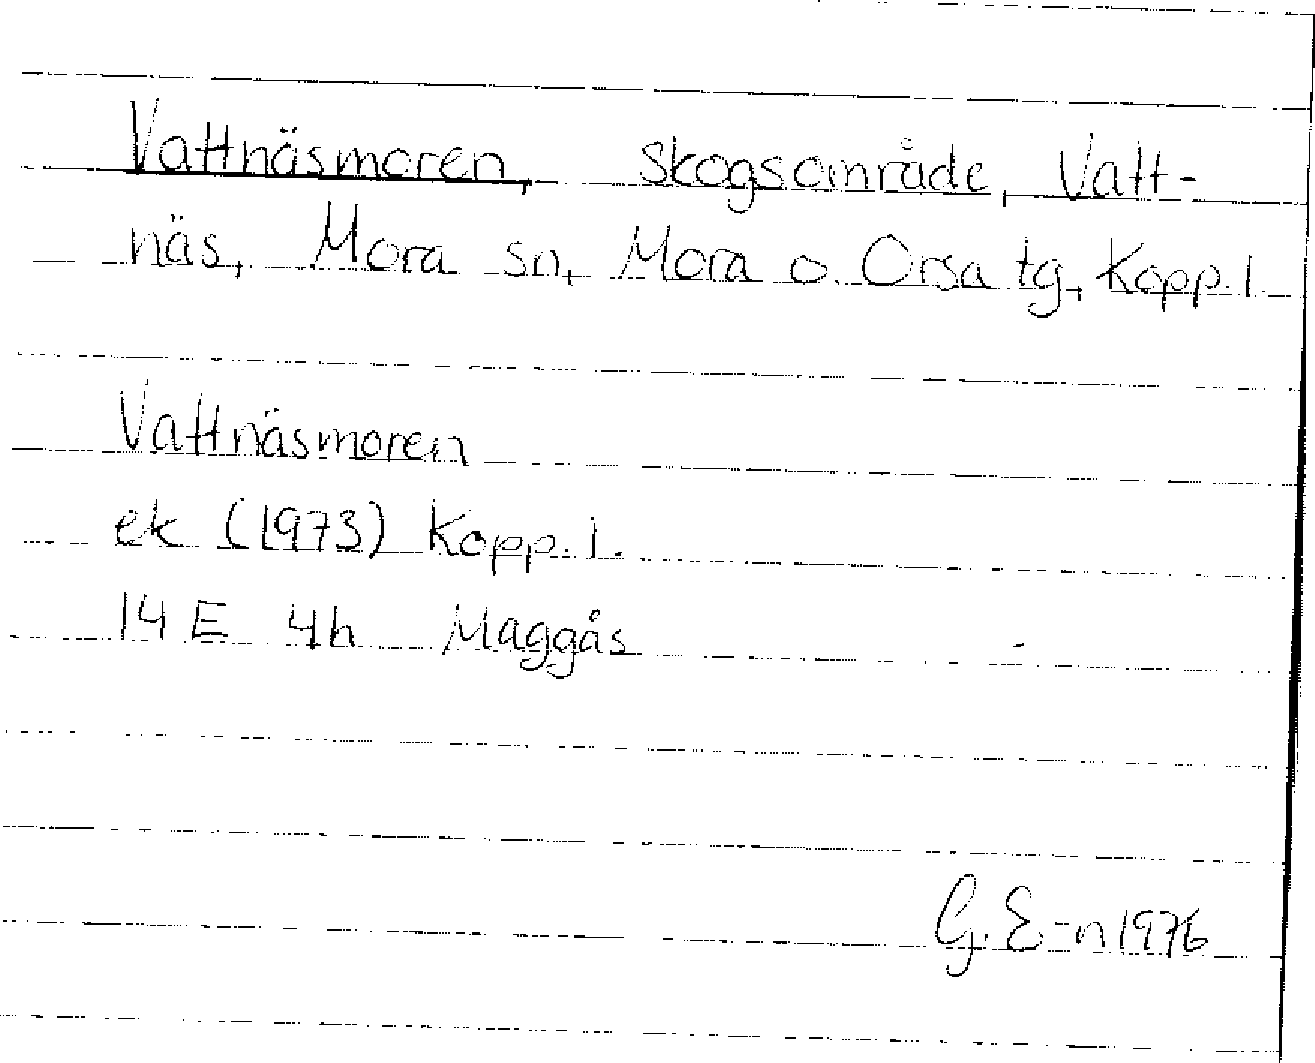 Vattnäsmoren, skogsområde, Vatt-
näs, Mora sn, Mora o. Orsa tg, Kopp. l.
Vattnäsmoren
ek (1973) Kopp. l.
14 E 4h Maggås
G. E-n 1976